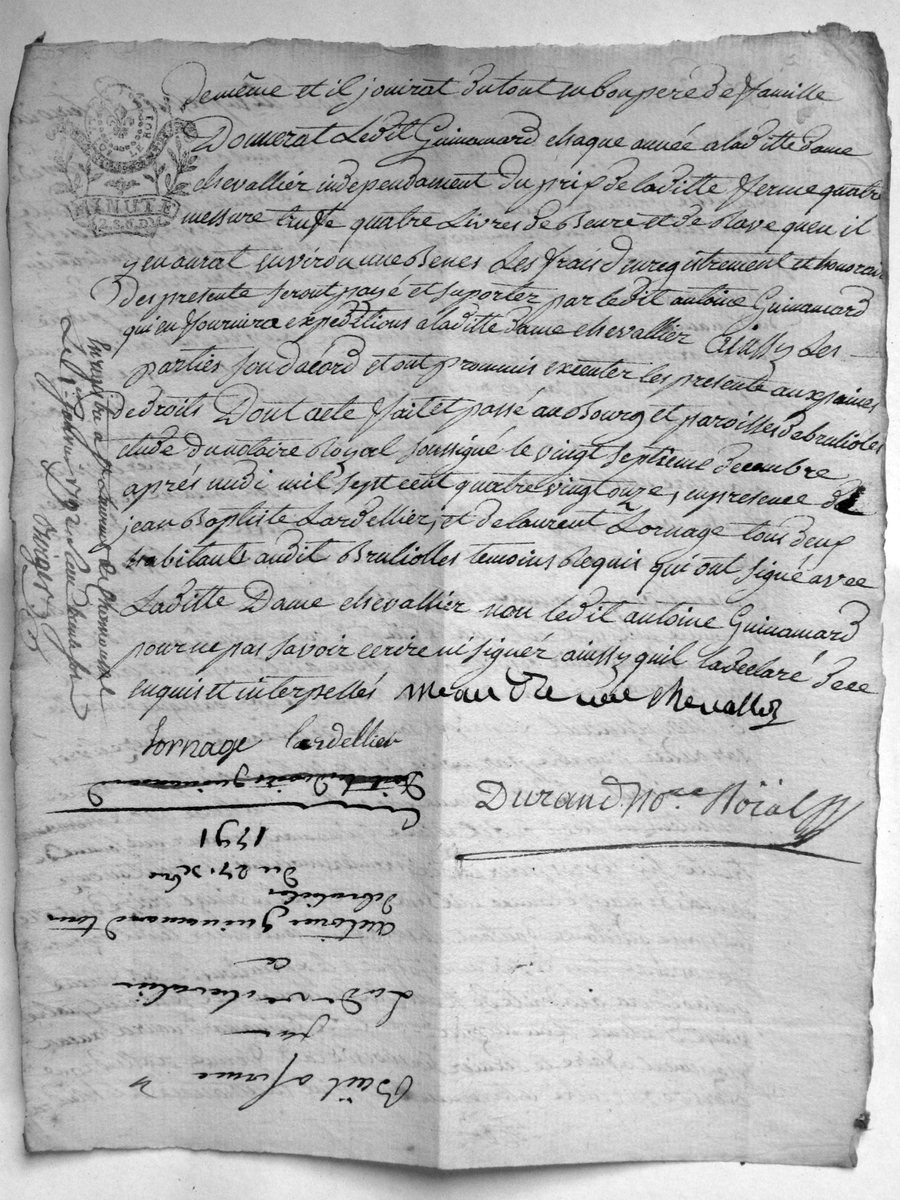 de même et il jouirat du tout en bon pere de famille
Donnerat Ledit Guinamard chaque année a laditte dame
chevallier independament du prix de laditte ferme quatre
messure truffe quatre Livres de Beure et de Rave quen il
y en aurat environ une Benes Les frais d'enregistrement et honorair
des presente seront payé et suportez par ledit antoine Guinamard
qui en fournira expeditions a laditte Dame chevallier Ainssy Les
parties son dacord et ont prommis executer les presente aux peines
de droits Dont acte fait et passé au Bourg et paroisse de brulioles
etude du notaire Royal soussigné le vingt septieme decembre
aprés midi mil sept cent quatre vingt onze, en presence de
jean Baptiste Lardellier, et de laurent Lornage tous deux
habitants audit Brulliolles temoins Requis qui ont signé avec
Laditte Dame chevallier non ledit antoine Guinamard
pour ne pas savoir ecrire ni signér ainssy quil la declaré de ce
enquis et interpellés
chevallier
Lornage Lardellier
Durand No.re Roial
MINUTE
Bail a ferme
par
La D. ve chevalier
a
antoine guinamard
de brulioles
Du 27. Xbre
1791